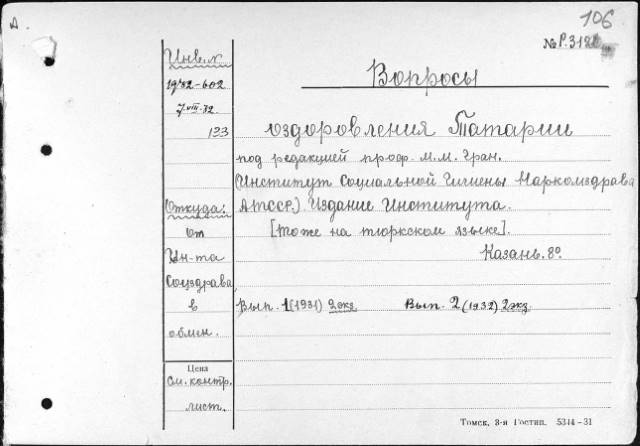 А.
106
№ Р.318
Инв. к
1932-602
7 VIII 32.
133
Откуда:
от
Ин-та
Соцздрава
в
обмен.
Цена
См. контр.
лист.
Вопросы
оздоровления Татарии
под редакцией проф. М. М. Гран.
(Институт Социальной Гигиены Наркомздрава
АТССР.) Издание Института.
[тоже на тюркском языке].
Казань. 8º.
Вып. 1 (1931) 2 экз Вып. 2 (1932) 2 экз.
Томск, 3-я Гостип. 5314-31